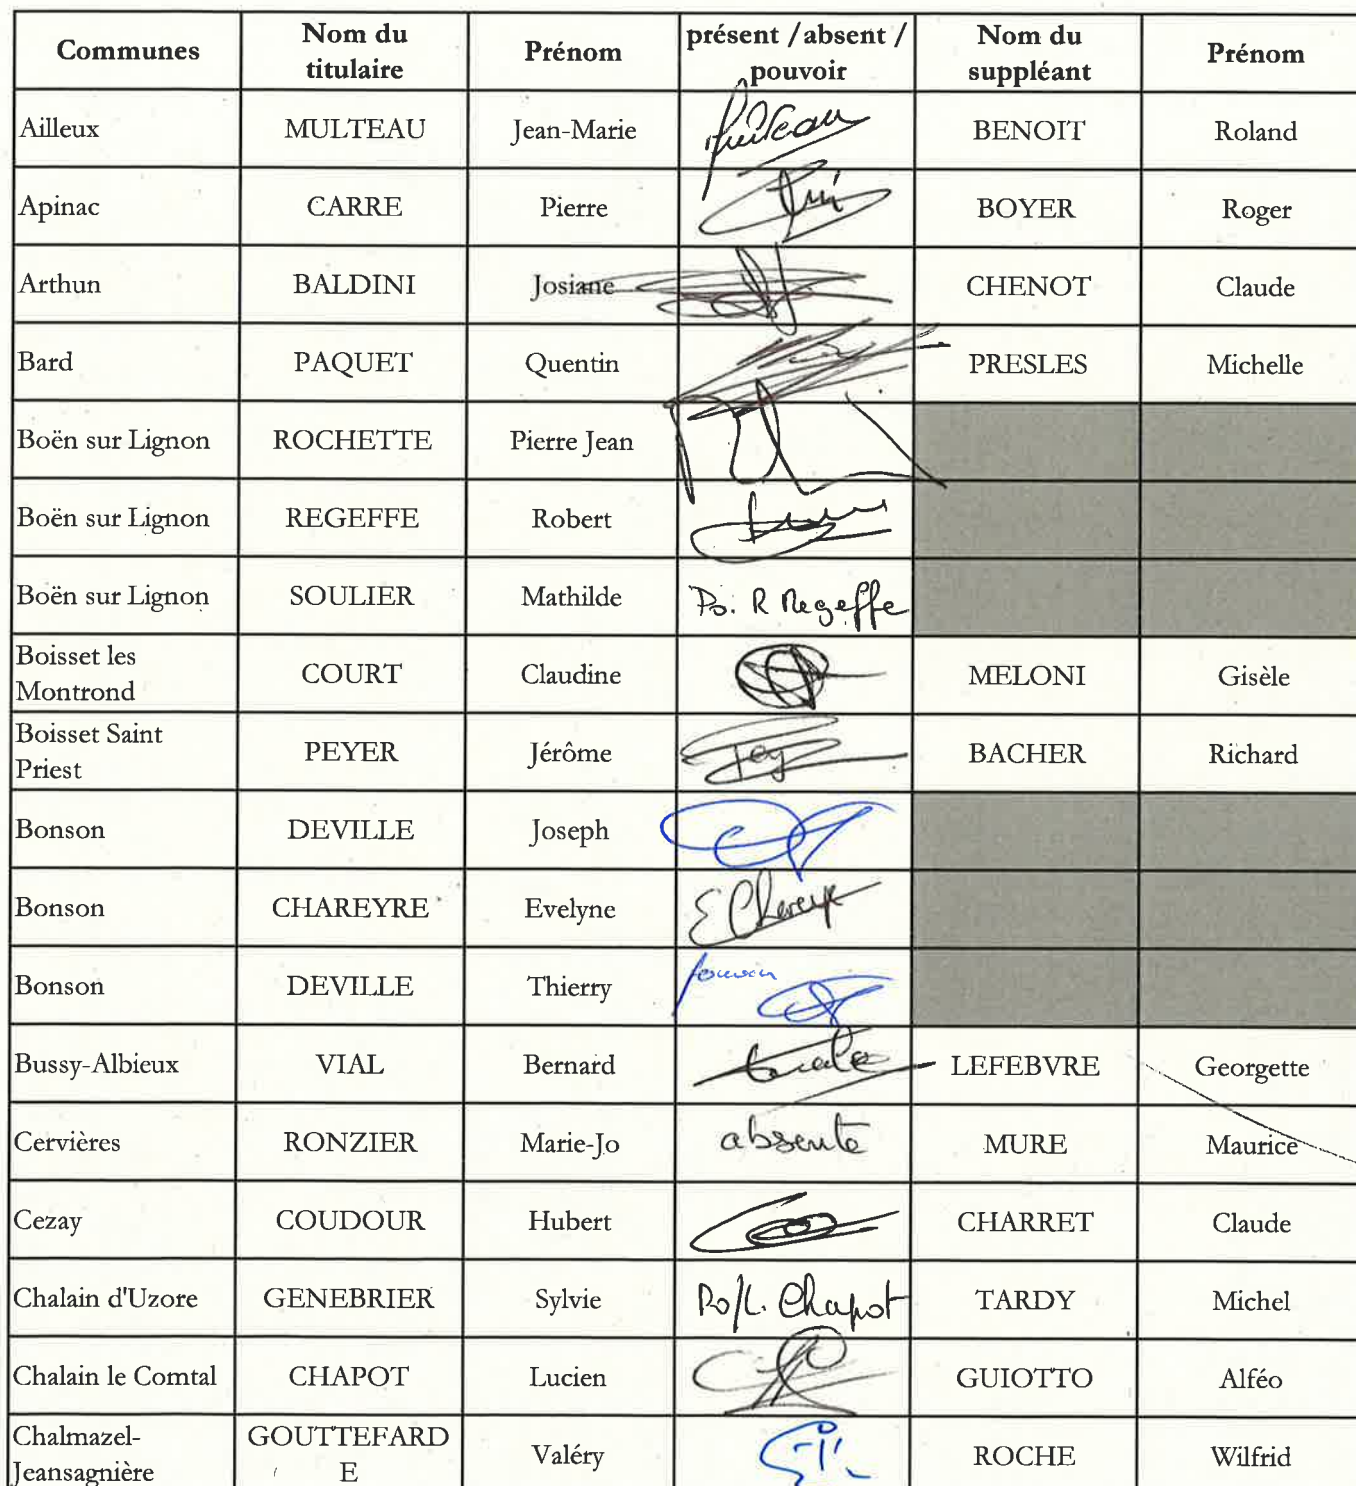 Communes Nom du titulaire Prénom présent / absent / pouvoir Nom du suppléant Prénom
Ailleux MULTEAU Jean-Marie BENOIT Roland
Apinac CARRE Pierre BOYER Roger
Arthun BALDINI Josiane CHENOT Claude
Bard PAQUET Quentin PRESLES Michelle
Boën sur Lignon ROCHETTE Pierre Jean
Boën sur Lignon REGEFFE Robert
Boën sur Lignon SOULIER Mathilde Po. R Regeffe
Boisset les Montrond COURT Claudine MELONI Gisèle
Boisset Saint Priest PEYER Jérôme BACHER Richard
Bonson DEVILLE Joseph
Bonson CHAREYRE Evelyne
Bonson DEVILLE Thierry pouvoir
Bussy-Albieux VIAL Bernard LEFEBVRE Georgette
Cervières RONZIER Marie-Jo absente MURE Maurice
Cezay COUDOUR Hubert CHARRET Claude
Chalain d'Uzore GENEBRIER Sylvie Po/L. Chapot TARDY Michel
Chalain le Comtal CHAPOT Lucien GUIOTTO Alféo
Chalmazel-Jeansagnière GOUTTEFARDE Valéry ROCHE Wilfrid